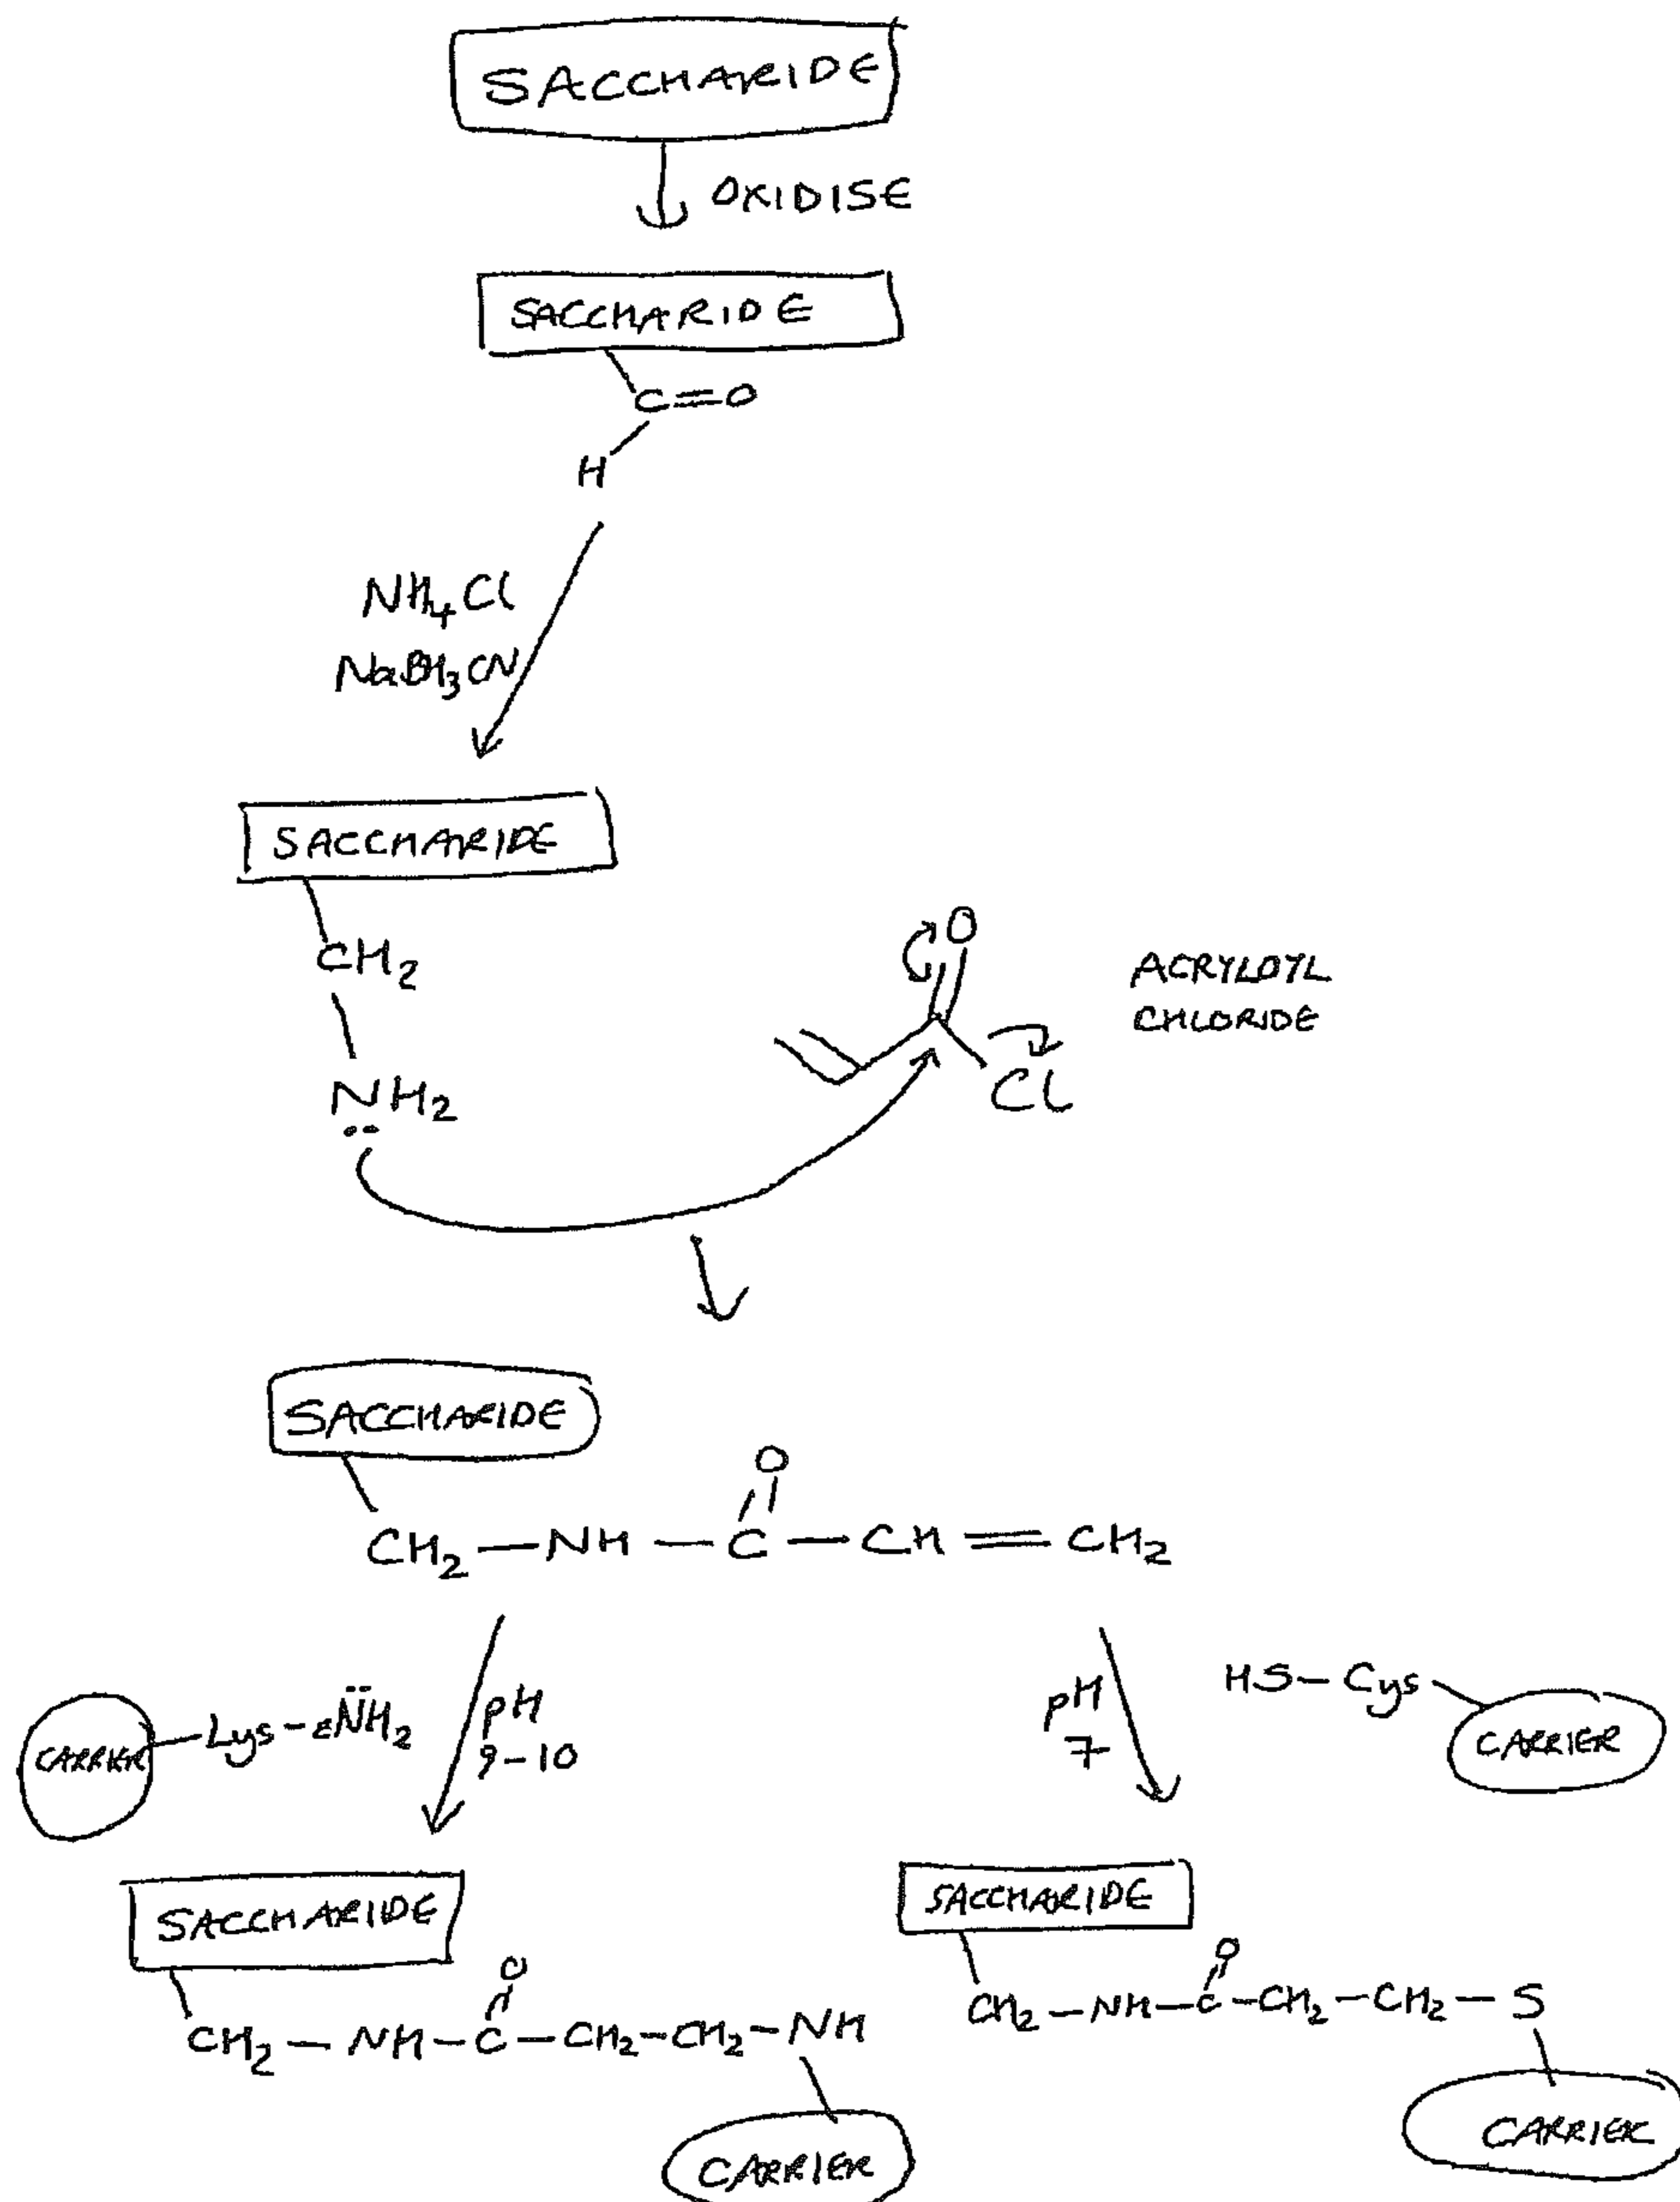 SACCHARIDE
OXIDISE
SACCHARIDE
C=O
H
NH4Cl
NaBH3CN
SACCHARIDE
CH2
NH2
O
Cl
ACRYLOYL
CHLORIDE
SACCHARIDE
O
CH2—NH—C—CH=CH2
CARRIER
Lys-εNH2
pH
9-10
pH
7
HS-Cys
CARRIER
SACCHARIDE
O
CH2—NH—C—CH2-CH2-NH
CARRIER
SACCHARIDE
O
CH2—NH—C—CH2—CH2—S
CARRIER